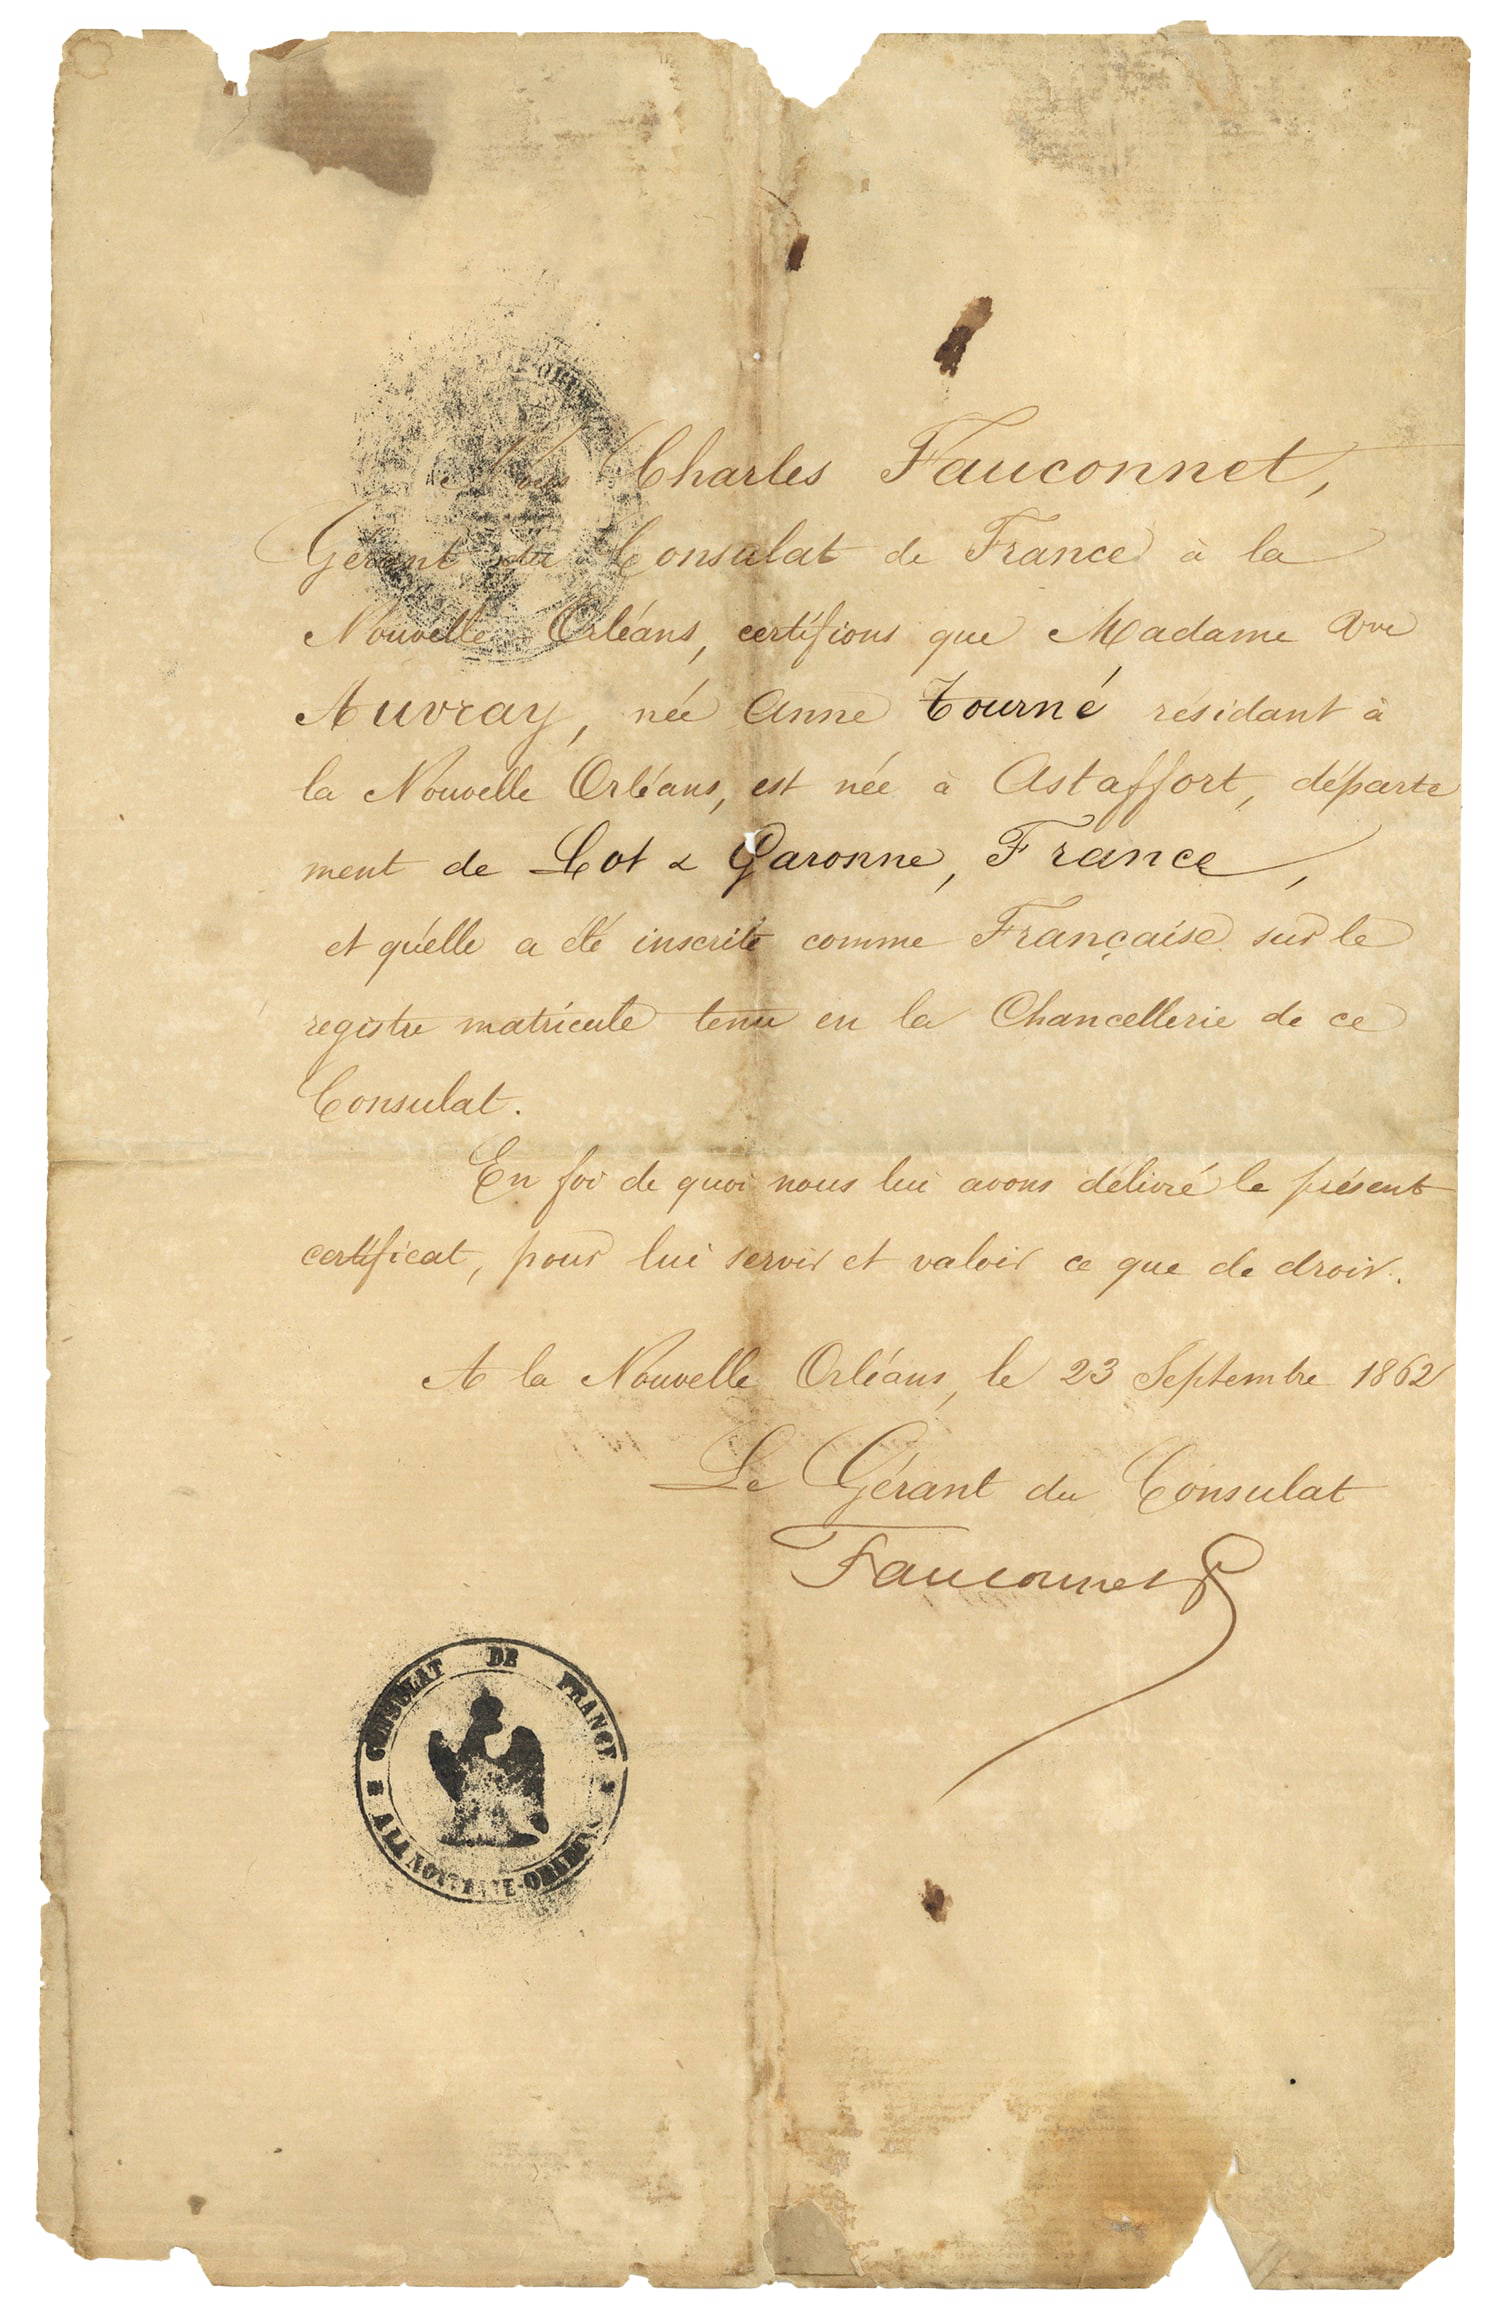 Nous Charles Fauconnet,
Gérant du Consulat de France à la
Nouvelle Orléans, certifions que Madame Vve
Auvray, née Anne Tourné résidant à
la Nouvelle Orléans, est née à Astaffort, départe
ment de Lot & Garonne, France,
et qu'elle a été inscrite comme Française sur le
registre matricule tenu en la Chancellerie de ce
Consulat.
En foi de quoi nous lui avons délivré le présent
certificat, pour lui servir et valoir ce que de droit.
A la Nouvelle Orléans, le 23 Septembre 1862
Le Gérant du Consulat
Fauconnet
CONSULAT DE FRANCE
A LA NOUVELLE-ORLEANS